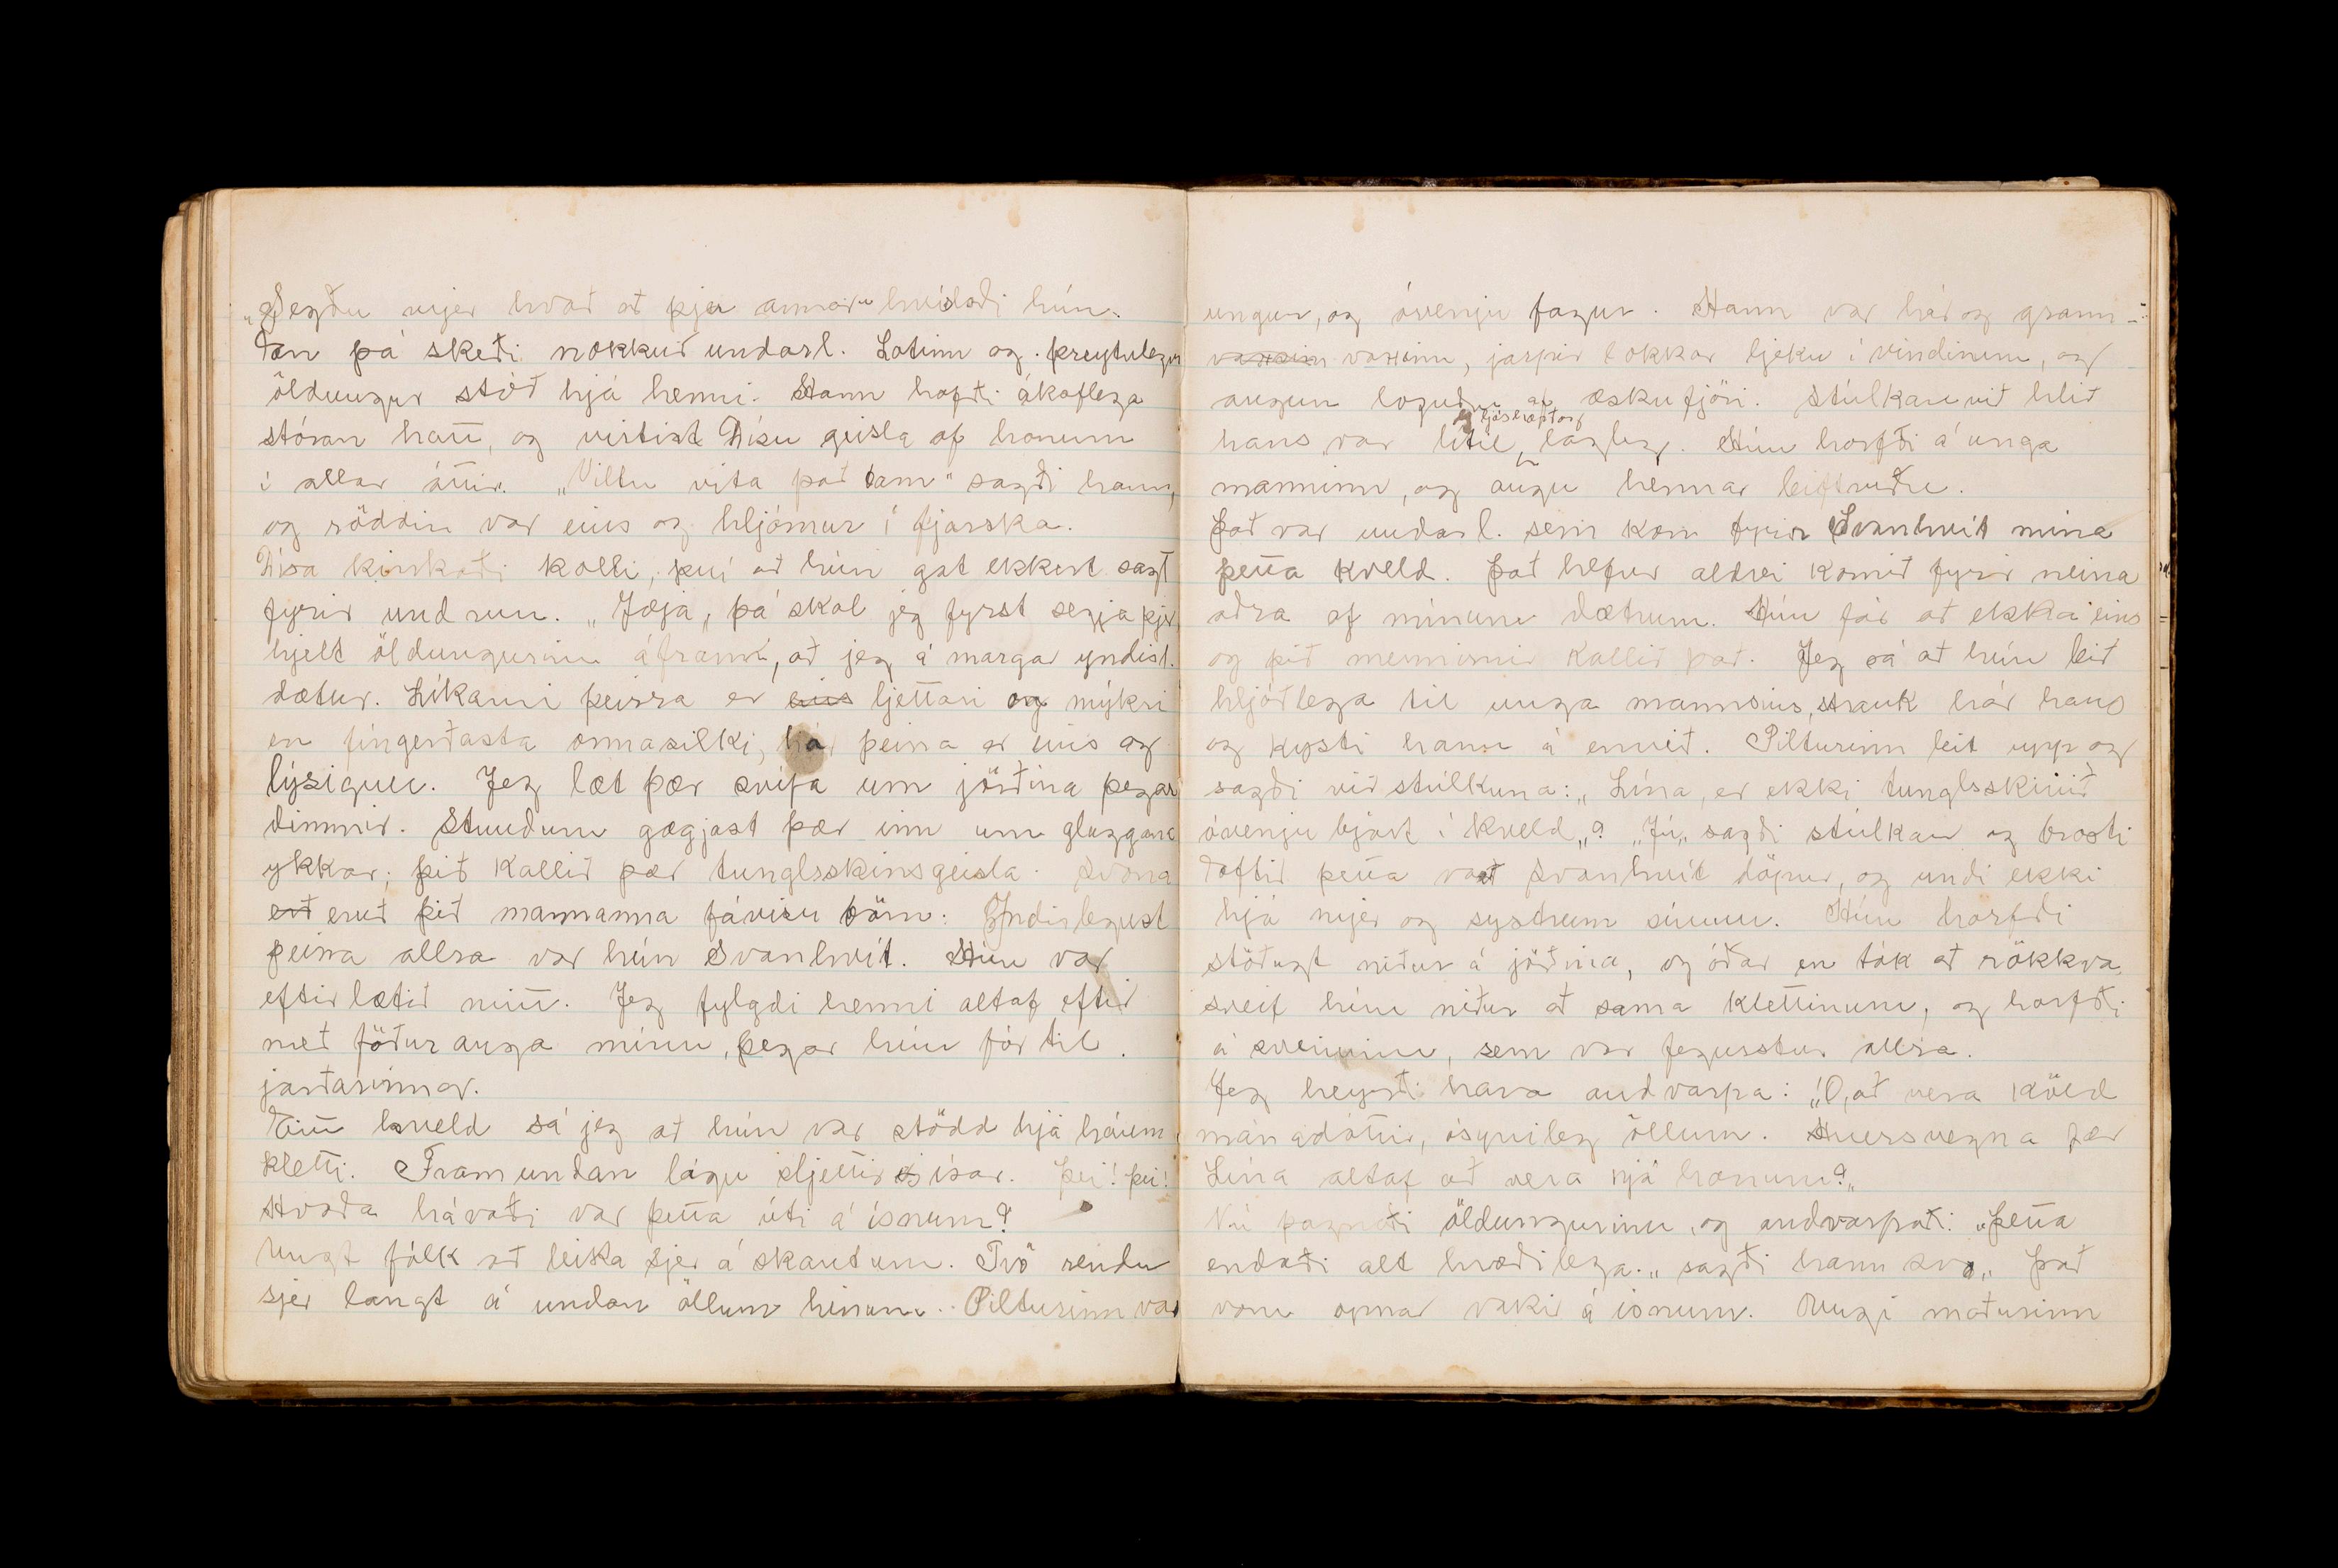 „Segðu mjer hvað að þjer amar“ hvíslaði hún.
En þá skeði nokkuð undarl. Lotinn og þreytulegur
öldungur stóð hjá henni. Hann hafði ákaflega
stóran hatt, og virtist Dísu geisla af honum
í allar áttir. „Viltu vita það barn“ sagði hann,
og röddin var eins og hljómur í fjarska.
Dísa kinkaði kolli, því að hún gat ekkert sagt
fyrir undrun. „Jæja, þá skal jeg fyrst segja þjer,
hjelt öldungurinn áfram, að jeg á margar yndisl.
dætur. Líkami þeirra er eins ljettari og mýkri
en fíngerðasta ormasilki, hár þeirra er eins og
lýsigull. Jeg læt þær svífa um jörðina þegar
dimmir. Stundum gægjast þær inn um gluggana
ykkar; þið kallið þær tunglsskinsgeisla. Svona
erð eruð þið mannanna fávísu börn. Yndislegust
þeirra allra var hún Svanhvít. Hún var
eftirlætið mitt. Jeg fylgdi henni altaf eftir
með föðurauga mínu, þegar hún fór til
jarðarinnar.
Eitt kveld sá jeg að hún var stödd hjá háum
kletti. Framundan lágu sljettir ísar. Þei! þei!
Hvaða hávaði var þetta úti á ísnum?
Ungt fólk að leika sjer á skautum. Tvö rendu
sjer langt á undan öllum hinum. Pilturinn var
ungur, og óvenju fagur. Hann var hár og grann-
vaxxin vaxinn, jarpir lokkar ljeku í vindinum, og
augun loguðu af æskufjöri. Stúlkan við hlið
ljóshærð og
hans var lítil, lagleg. Hún horfði á unga
manninn, og augu hennar leiftruðu.
Það var undarl. sem kom fyrir Svanhvít mína
þetta kveld. Það hefur aldrei komið fyrir neina
aðra af mínum dætrum. Hún fór að elska eins
og þið mennirnir kallið það. Jeg sá að hún leit
hljóðlega til unga mannsins, strauk hár hans
og kysti hann á ennið. Pilturinn leit upp og
sagði við stúlkuna: „Lína, er ekki tunglsskinið
óvenju bjart í kveld„? „Jú„ sagði stúlkan og brosti
Eftir þetta varð Svanhvít döpur, og undi ekki
hjá mjer og systrum sínum. Hún horfði
stöðugt niður á jörðina, og óðar en tók að rökkva
sveif hún niður að sama klettinum, og horfði
á sveininn, sem var fegurstur allra.
Jeg heyrði hana andvarpa: „Ó, að vera köld
mánadóttir, ósýnileg öllum. Hversvegna fær
Lína altaf að vera hjá honum?„
Nú þagnaði öldungurinn, og andvarpaði. „Þetta
endaði alt hræðilega.„ sagði hann svo„ Það
voru opnar vakir á ísnum. Ungi maðurinn